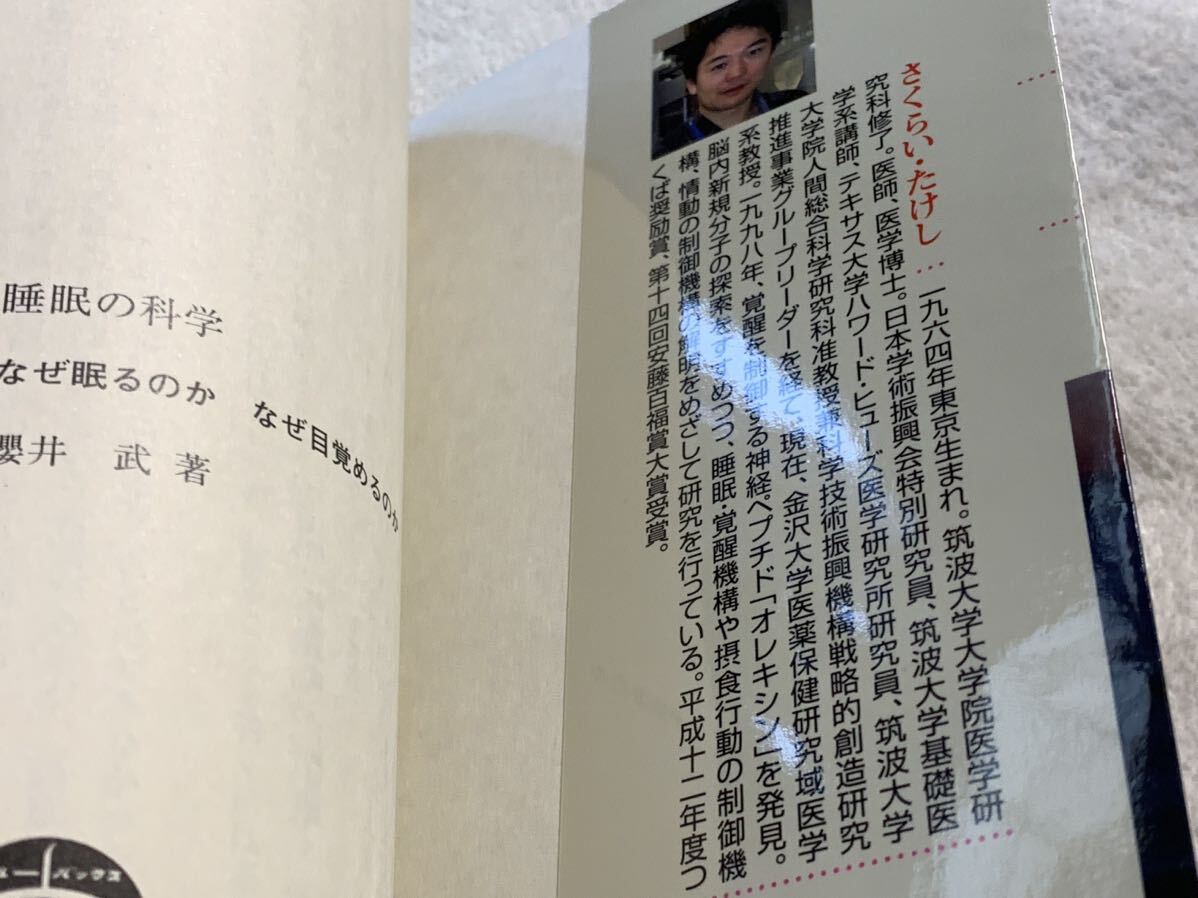 睡眠の科学
なぜ眠るのか なぜ目覚めるのか
櫻井 武 著
ューバックス
さくらい・たけし … 一九六四年東京生まれ。筑波大学大学院医学研
究科修了。医師、医学博士。日本学術振興会特別研究員、筑波大学基礎医
学系講師、テキサス大学ハワード・ヒューズ医学研究所研究員、筑波大学
大学院人間総合科学研究科准教授兼科学技術振興機構戦略的創造研究
推進事業グループリーダーを経て、現在、金沢大学医薬保健研究域医学
系教授。一九九八年、覚醒を制御する神経ペプチド「オレキシン」を発見。
脳内新規分子の探索をすすめつつ、睡眠・覚醒機構や摂食行動の制御機
構、情動の制御機構の解明をめざして研究を行っている。平成十二年度つ
くば奨励賞、第十四回安藤百福賞大賞受賞。